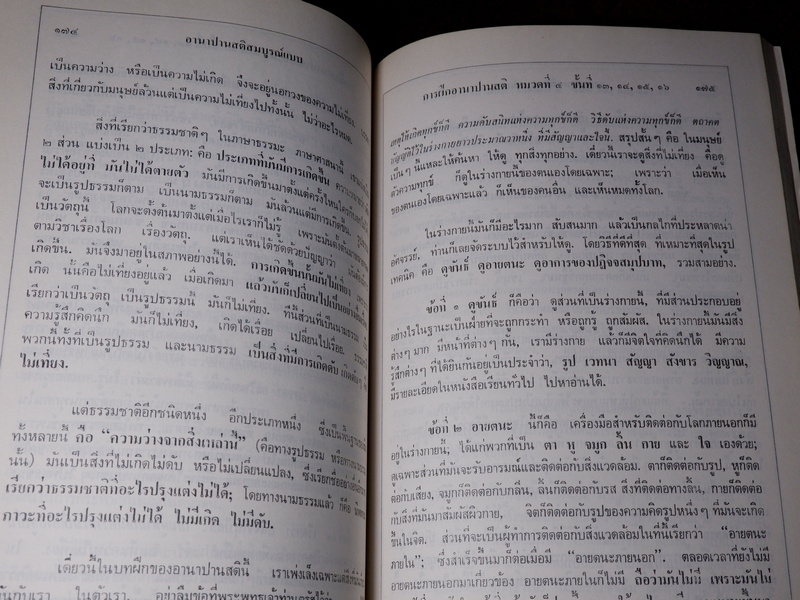 ๑๗๔
อานาปานสติสมบูรณ์แบบ
เป็นความว่าง หรือเป็นความไม่เกิด จึงจะอยู่นอกวงของความไม่เที่ยง.
สิ่งที่เกี่ยวกับมนุษย์ล้วนแต่เป็นความไม่เที่ยงไปทั้งนั้น ไม่ว่าอะไรหมด.
สิ่งที่เรียกว่าธรรมชาติๆ ในภาษาธรรมะ ภาษาศาสนานี้
๒ ส่วน แบ่งเป็น ๒ ประเภท: คือ ประเภทที่มันมีการเกิดขึ้น
ไม่ได้อยู่ที่ มันไม่ได้ตายตัว มันมีการเกิดขึ้นมาตั้งแต่ครั้งไหนใคร
จะเป็นรูปธรรมก็ตาม เป็นนามธรรมก็ตาม มันล้วนแต่มีการเกิดขึ้น.
เป็นวัตถุนี้ โลกจะตั้งต้นมาตั้งแต่เมื่อไรเราก็ไม่รู้ เพราะมันตั้งต้น
ตามวิชาเรื่องโลก เรื่องวัตถุ. แต่เราเห็นได้ชัดด้วยปัญญาว่า
เกิดขึ้น. มันจึงมาอยู่ในสภาพอย่างนี้ได้. การเกิดขึ้นนั้นมันไม่เที่ยง
เกิด นั้นคือไม่เที่ยงอยู่แล้ว เมื่อเกิดมา แล้วมันก็เปลี่ยนไปเป็นอย่าง
เรียกว่าเป็นวัตถุ เป็นรูปธรรมนี้ มันก็ไม่เที่ยง. ทีนี้ส่วนที่เป็นนามธรรม
ความรู้สึกคิดนึก มันก็ไม่เที่ยง, เกิดได้เรื่อย เปลี่ยนไปเรื่อย.
พวกนี้ทั้งที่เป็นรูปธรรม และนามธรรม เป็นสิ่งที่มีการเกิดดับ เกิดดับ
ไม่เที่ยง.
แต่ธรรมชาติอีกชนิดหนึ่ง อีกประเภทหนึ่ง ซึ่งเป็น
ทั้งหลายนี้ คือ “ความว่างจากสิ่งเหล่านี้” (คือทางรูปธรรม หรือทาง
นั้น) มันเป็นสิ่งที่ไม่เกิดไม่ดับ หรือไม่เปลี่ยนแปลง, ซึ่งเรียกชื่ออย่าง
เรียกว่าธรรมชาติที่อะไรปรุงแต่งไม่ได้; โดยทางนามธรรมแล้ว ก็คือ
ภาวะที่อะไรปรุงแต่งไม่ได้ ไม่มีเกิด ไม่มีดับ.
เดี๋ยวนี้ในบทฝึกของอานาปานสตินี้ เราเพ่งเล็งเฉพาะ
ในตัวเรา. อย่าลืมข้อที่พระพุทธเจ้าท่านตรัสไว้ว่า
การฝึกอานาปานสติ หมวดที่ ๔ ขั้นที่ ๑๓, ๑๔, ๑๕, ๑๖
๑๗๕
เหตุให้เกิดทุกข์ก็ดี ความดับสนิทแห่งความทุกข์ก็ดี วิธีดับแห่งความทุกข์ก็ดี ตถาคต
บัญญัติไว้ในร่างกายยาวประมาณวาหนึ่ง ที่มีสัญญาและใจนี้. สรุปสั้นๆ คือ ในมนุษย์
เป็นๆ นี้แหละให้ค้นหา ให้ดู ทุกสิ่งทุกอย่าง. เดี๋ยวนี้เราจะดูสิ่งที่ไม่เที่ยง คือดู
ตัวความทุกข์ ก็ดูในร่างกายนี้ของตนเองโดยเฉพาะ; เพราะว่า เมื่อเห็น
ของตนเองโดยเฉพาะแล้ว ก็เห็นของคนอื่น และเห็นหมดทั้งโลก.
ในร่างกายนี้มันก็มีอะไรมาก สับสนมาก แล้วเป็นกลไกที่ประหลาดน่า
อัศจรรย์. ท่านก็เลยจัดระบบไว้สำหรับให้ดู. โดยวิธีที่ดีที่สุด ที่เหมาะที่สุดในรูป
เทคนิค คือ ดูขันธ์ ดูอายตนะ ดูอาการของปฏิจจสมุปบาท, รวมสามอย่าง.
ข้อที่ ๑ ดูขันธ์ ก็คือว่า ดูส่วนที่เป็นร่างกายนี้, ที่มีส่วนประกอบอยู่
อย่างไรในฐานะเป็นฝ่ายที่จะถูกกระทำ หรือถูกรู้ ถูกสัมผัส, ในร่างกายนี้มันมีสิ่ง
ต่างๆ มาก มีหน้าที่ต่างๆ กัน, เรามีร่างกาย แล้วก็มีจิตใจที่คิดนึกได้ มีความ
รู้สึกต่างๆ ที่ได้ยินกันอยู่เป็นประจำว่า, รูป เวทนา สัญญา สังขาร วิญญาณ,
มีรายละเอียดในหนังสือเรียนทั่วไป ไปหาอ่านได้.
ข้อที่ ๒ อายตนะ นี้ก็คือ เครื่องมือสำหรับติดต่อกับโลกภายนอกก็มี
อยู่ในร่างกายนี้, ได้แก่พวกที่เป็น ตา หู จมูก ลิ้น กาย และ ใจ เองด้วย;
ดูเฉพาะส่วนที่มันจะรับอารมณ์และติดต่อกับสิ่งแวดล้อม. ตาก็ติดต่อกับรูป, หูก็ติด
ต่อกับเสียง, จมูกก็ติดต่อกับกลิ่น, ลิ้นก็ติดต่อกับรส สิ่งที่ติดต่อทางลิ้น, กายก็ติดต่อ
กับสิ่งที่มันมาสัมผัสผิวกาย, จิตก็ติดต่อกับรูปของความคิดรูปหนึ่งๆ ที่มันจะเกิด
ขึ้นในจิต. ส่วนที่จะเป็นผู้ทำการติดต่อกับสิ่งแวดล้อมในที่นี้เรียกว่า “อายตนะ
ภายใน”; ซึ่งสำเร็จขึ้นมาก็ต่อเมื่อมี “อายตนะภายนอก”. ตลอดเวลาที่ยังไม่มี
อายตนะภายนอกมาเกี่ยวข้อง อายตนะภายในก็ไม่มี ถือว่ามันไม่มี เพราะมันไม่